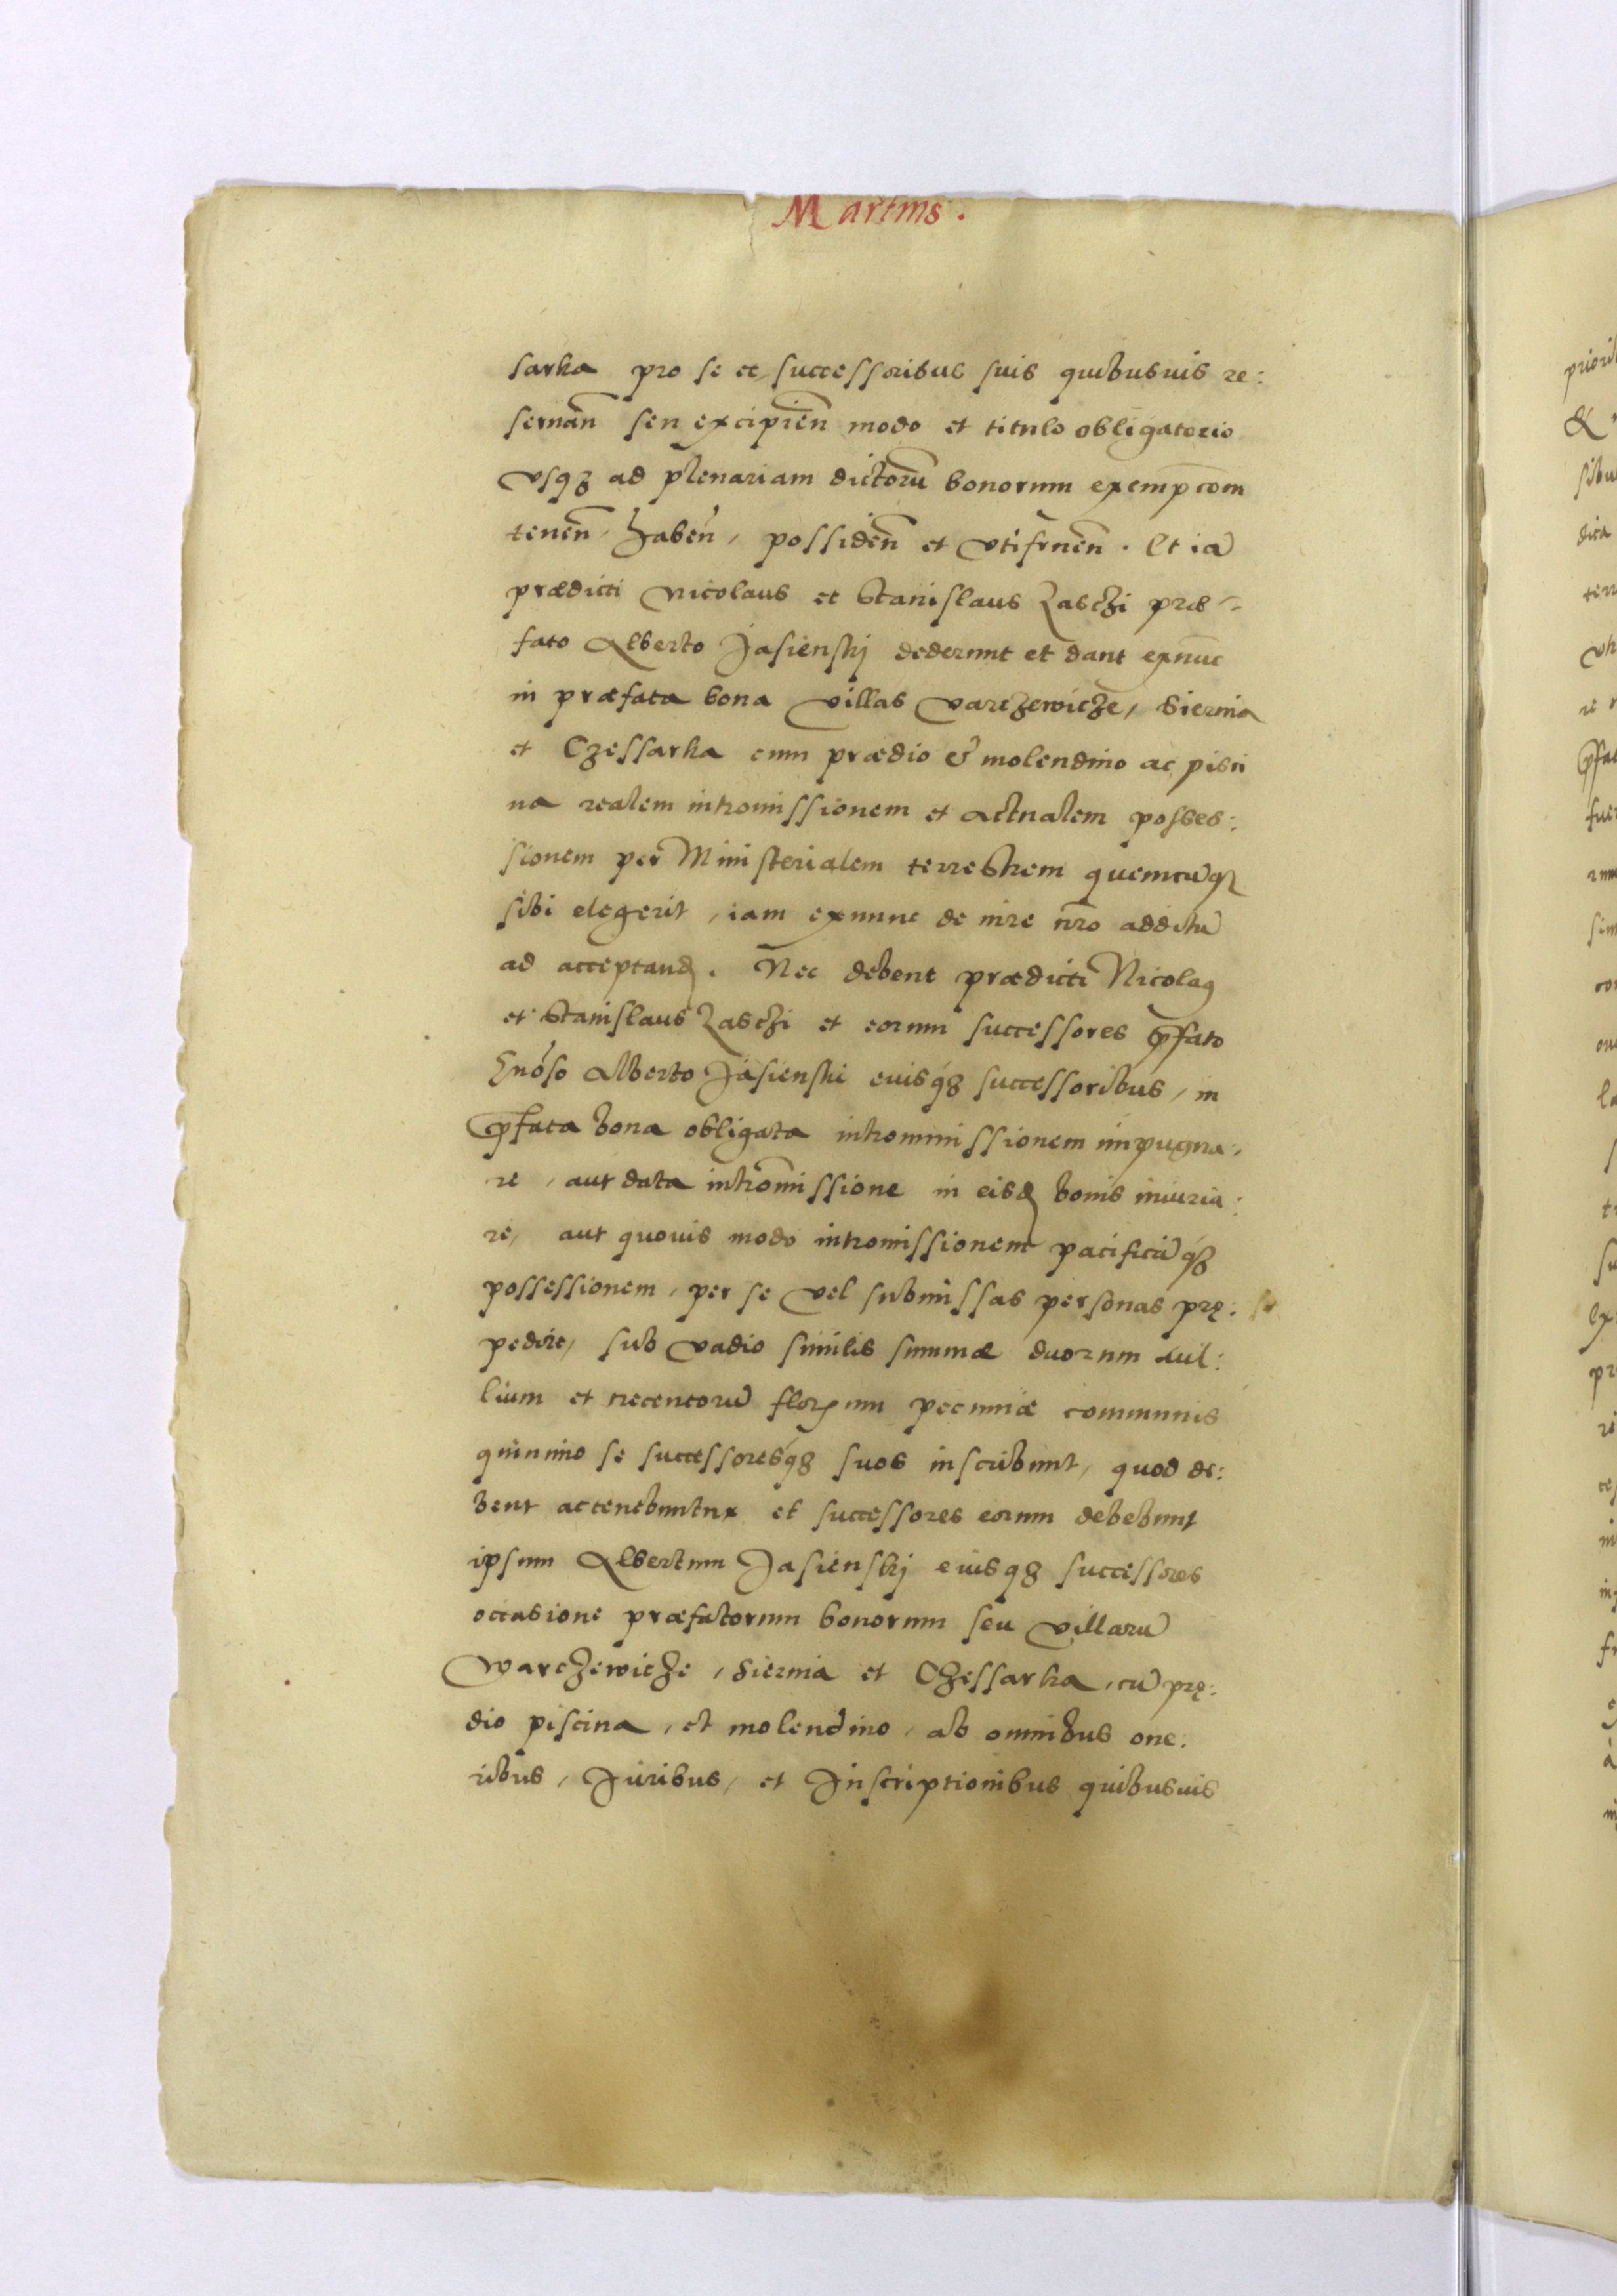 Martius.
sarka pro se et successoribus suis quibusuis re:
seruan̄ seu excipien̄ modo et titulo obligatorio
vsq3 ad plenariam dictorū bonorum exempc̄om
tenen̄, haben̄, possiden̄ et vtifruen̄. Et iā
prædicti Nicolaus et Stanislaus Zaschi præ=
fato Alberto Jasienskj dederunt et dant exnūc
in præfata bona villas Varczewicze, Siernia
et Czessarka cum prædio & molendino ac pisci
na realem intromissionem et actualem posses:
sionem per Ministerialem terrestrem quemcūq3
sibi elegerit, iam exnunc de iure nr̄o additū
ad acceptand. Nec debent prædicti Nicolaꝰ
et Stanislaus Zaschi et eorum successores p̄fato
Gnoso Alberto Jasienski eiusq3 successoribus, in
p̄fata bona obligata intromissionem impugna:
re, aut data intromissione in eisd bonis iniuria:
re, aut quouis modo intromissionem pacificāq3
possessionem, per se vel submissas personas prę:
pedire, sub vadio similis summæ duorum mil:
lium et trecentorū florenum pecuniæ communis
quinimo se successoresq3 suos inscribunt, quod de:
bent ac tenebuntur et successores eorum debebunt
ipsum Albertum Jasienskj eiusq3 successores
occasione præfatorum bonorum seu villarū
Warczewicze, Siernia et Czessarka, cū prę:
dio piscina, et molendino, ab omnibus one:
ribus, Juribus, et Inscriptionibus quibusuis